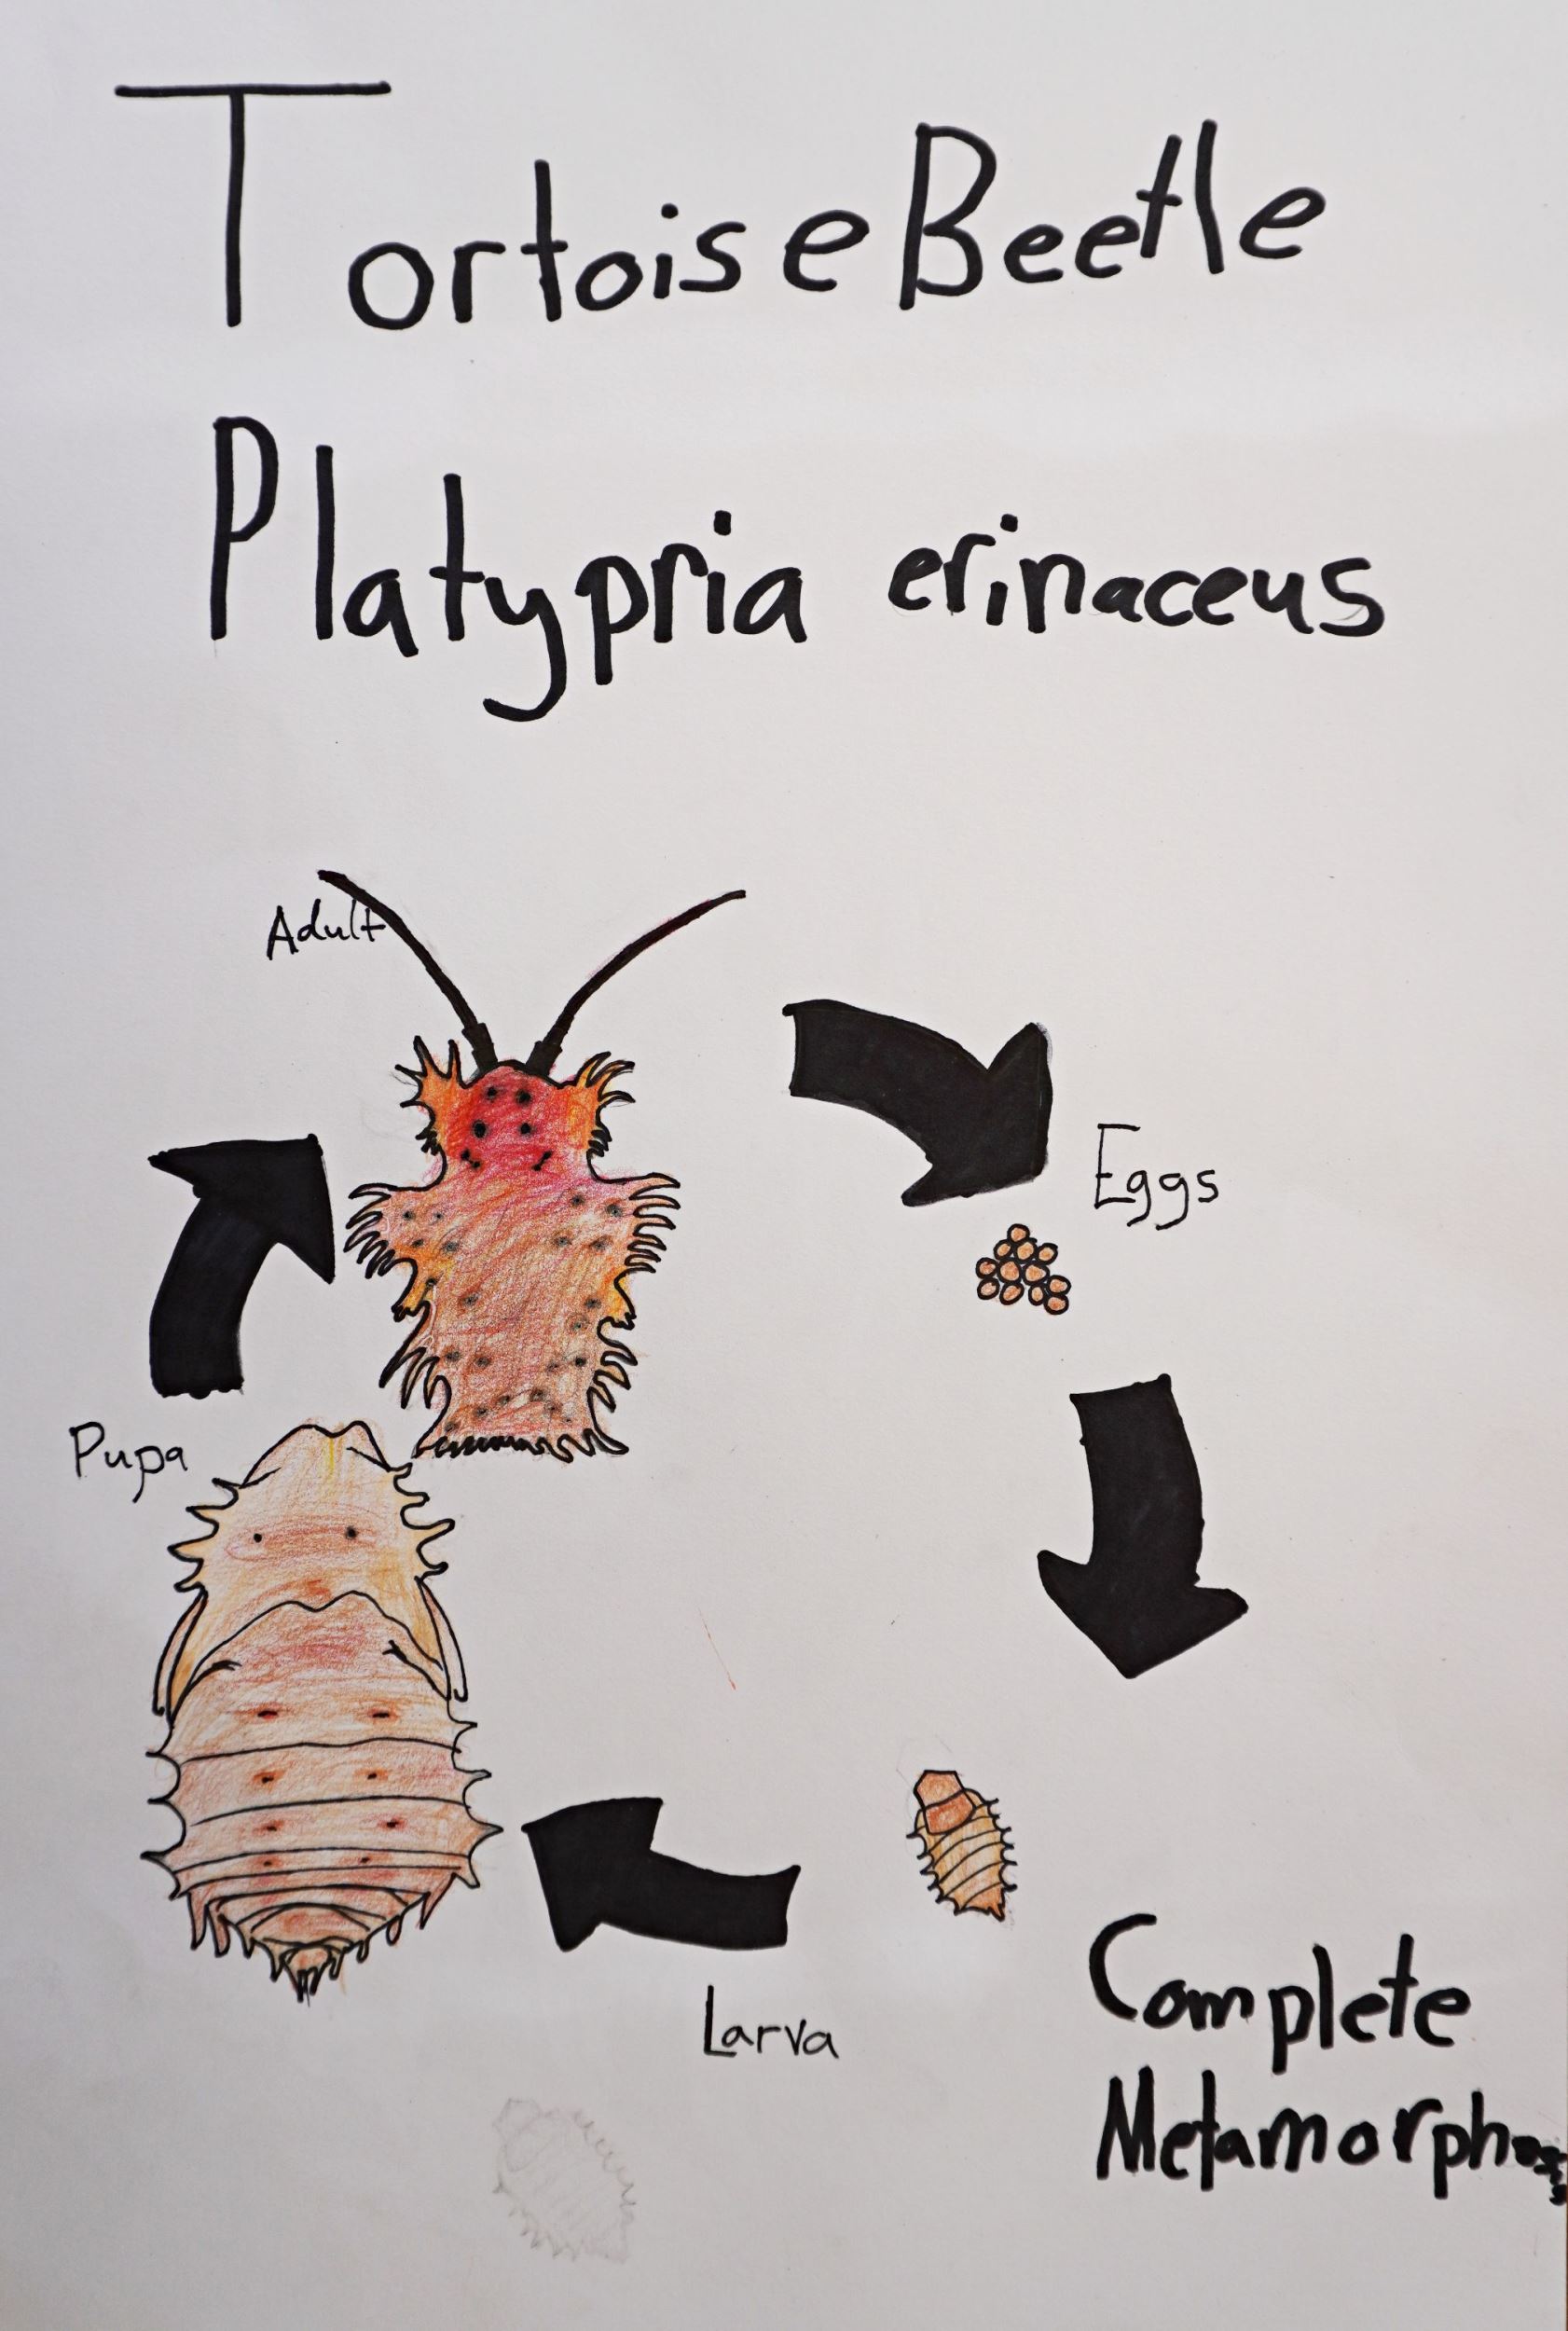 Tortoise Beetle
Platypria erinaceus
Adult
Eggs
Pupa
Larva
Complete